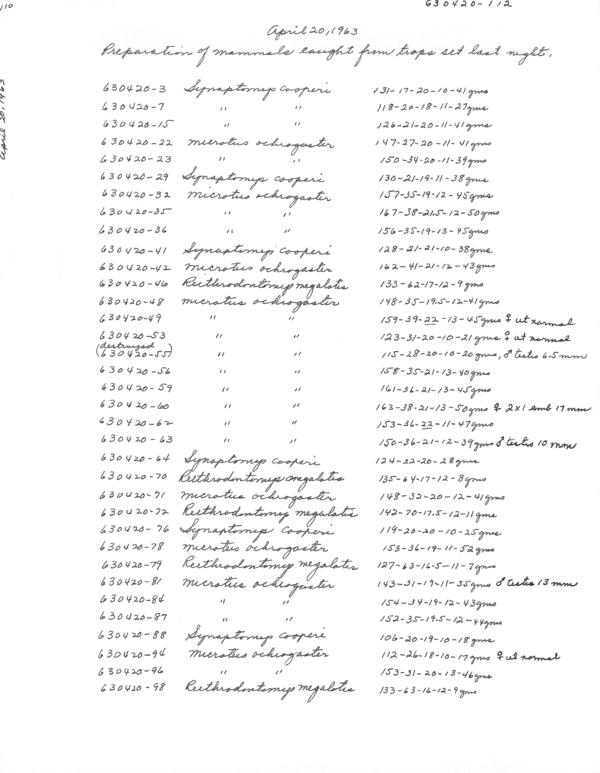 110
630420-112
April 20, 1963
April 20, 1963
Preparation of mammals caught from traps set last night.
630420-3 Synaptomys cooperi 131-17-20-10-41 gms
630420-7 " " 118-20-18-11-27 gms
630420-15 " " 126-21-20-11-41 gms
630420-22 Microtus ochrogaster 147-27-20-11-41 gms
630420-23 " " 150-34-20-11-39 gms
630420-29 Synaptomys cooperi 130-21-19-11-38 gms
630420-32 Microtus ochrogaster 157-35-19-12-45 gms
630420-35 " " 167-38-21.5-12-50 gms
630420-36 " " 156-35-19-13-45 gms
630420-41 Synaptomys cooperi 128-21-21-10-38 gms
630420-42 Microtus ochrogaster 162-41-21-12-43 gms
630420-46 Reithrodontomys megalotis 133-62-17-12-9 gms
630420-48 Microtus ochrogaster 148-35-19.5-12-41 gms
630420-49 " " 159-39-22-13-45 gms ♀ ut normal
630420-53 " " 123-31-20-10-21 gms ♀ ut normal
(destroyed
630420-55) " " 115-28-20-10-20 gms, ♂ testis 6.5 mm
630420-56 " " 158-35-21-13-40 gms
630420-59 " " 161-36-21-13-45 gms
630420-60 " " 163-38-21-13-50 gms ♀ 2x1 emb 17 mm
630420-62 " " 153-36-22-11-47 gms
630420-63 " " 150-36-21-12-39 gms ♂ testes 10 mm
630420-64 Synaptomys cooperi 124-22-20-28 gms
630420-70 Reithrodontomys megalotis 135-64-17-12-8 gms
630420-71 Microtus ochrogaster 148-32-20-12-41 gms
630420-72 Reithrodontomys megalotis 142-70-17.5-12-11 gms
630420-76 Synaptomys cooperi 119-20-20-10-25 gms
630420-78 Microtus ochrogaster 153-36-19-11-52 gms
630420-79 Reithrodontomys megalotis 127-63-16.5-11-7 gms
630420-81 Microtus ochrogaster 143-31-19-11-35 gms ♂ testes 13 mm
630420-84 " " 154-34-19-12-43 gms
630420-87 " " 152-35-19.5-12-44 gms
630420-88 Synaptomys cooperi 106-20-19-10-18 gms
630420-94 Microtus ochrogaster 112-26-18-10-17 gms ♀ ut normal
630420-96 " " 153-31-20-13-46 gms
630420-98 Reithrodontomys megalotis 133-63-16-12-9 gms